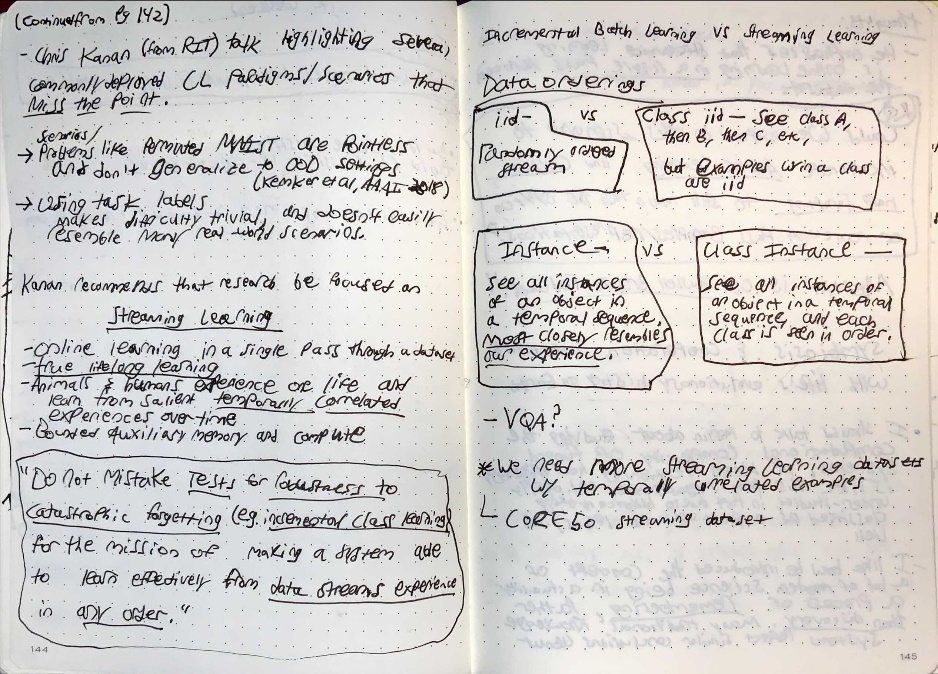 (Continued from Pg 142)
- Chris Kanan (from RIT) talk highlighting several
commonly deployed CL Paradigms/Scenarios that
Miss the Point.
Scenarios/
→ Problems like Permuted MNIST are Pointless
and don't generalize to OOD settings
(Kemker et al, AAAI 2018)
→ Using task labels
makes difficulty trivial, and doesn't easily
resemble many real world scenarios.
Kanan recommends that research be focused on
Streaming Learning
- Online learning in a single pass through a dataset
- true lifelong learning
- Animals & humans experience one life and
learn from salient temporally correlated
experiences over time
- Bounded Auxiliary memory and compute
"Do not mistake Tests for robustness to
catastrophic forgetting (eg. incremental class learning)
for the mission of making a system able
to learn effectively from data streams experience
in any order."
144
Incremental Batch Learning vs Streaming Learning
Data orderings
iid -
Randomly ordered
stream
vs
Class iid - see class A,
then B, then C, etc,
but examples w/in a class
are iid
Instance -
see all instances
of an object in
a temporal sequence.
most closely resembles
our experience.
vs
Class Instance -
see all instances of
an object in a temporal
sequence, and each
class is seen in order.
- VQA?
* We need more streaming learning datasets
w/ temporally correlated examples
CORE50 streaming dataset
145